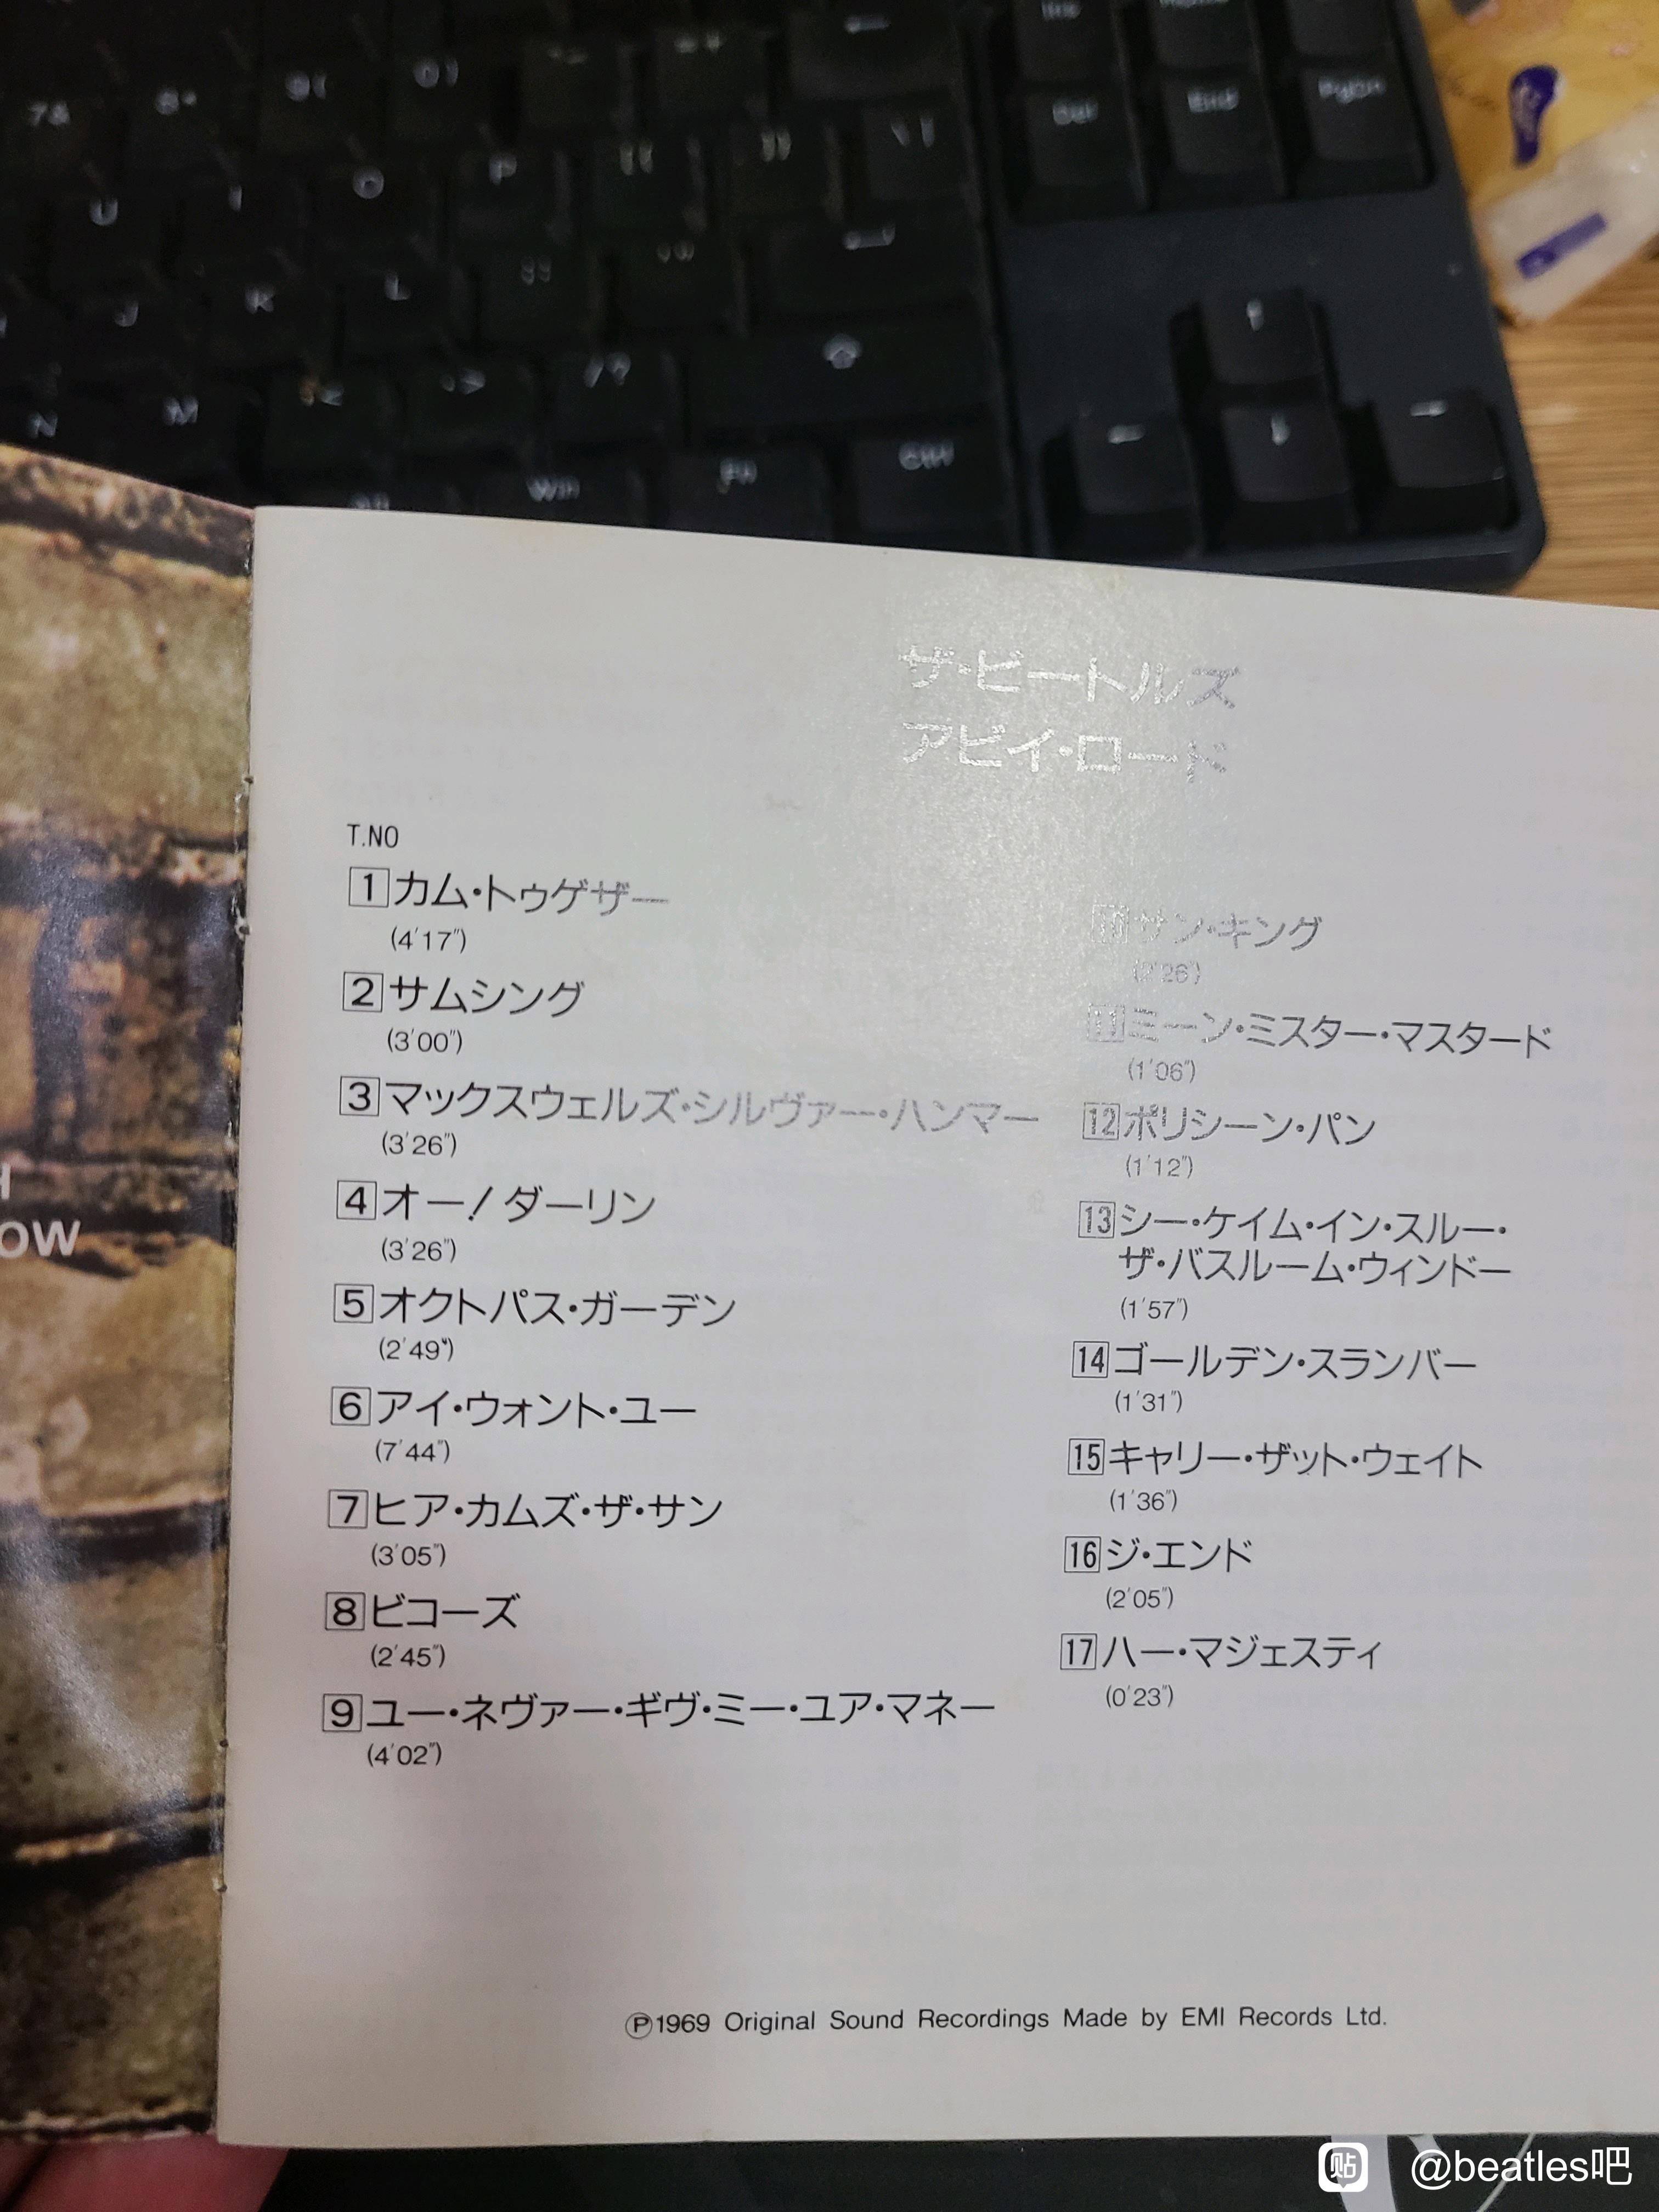 7& 8* 9( 0) -_ =+ ←
Ins
Del End PgDn
U I O P [{ ]} \|
J K L ;: '" ←
N M ,< .> /? ⇧ ↑
Alt Win Fn Ctrl ← ↓ →
OW
ザ・ビートルズ
アビイ・ロード
T.NO
1 カム・トゥゲザー
(4'17")
2 サムシング
(3'00")
3 マックスウェルズ・シルヴァー・ハンマー
(3'26")
4 オー! ダーリン
(3'26")
5 オクトパス・ガーデン
(2'49")
6 アイ・ウォント・ユー
(7'44")
7 ヒア・カムズ・ザ・サン
(3'05")
8 ビコーズ
(2'45")
9 ユー・ネヴァー・ギヴ・ミー・ユア・マネー
(4'02")
10 サン・キング
(2'26")
11 ミーン・ミスター・マスタード
(1'06")
12 ポリシーン・パン
(1'12")
13 シー・ケイム・イン・スルー・
ザ・バスルーム・ウィンドー
(1'57")
14 ゴールデン・スランバー
(1'31")
15 キャリー・ザット・ウェイト
(1'36")
16 ジ・エンド
(2'05")
17 ハー・マジェスティ
(0'23")
Ⓟ1969 Original Sound Recordings Made by EMI Records Ltd.
贴 @beatles吧